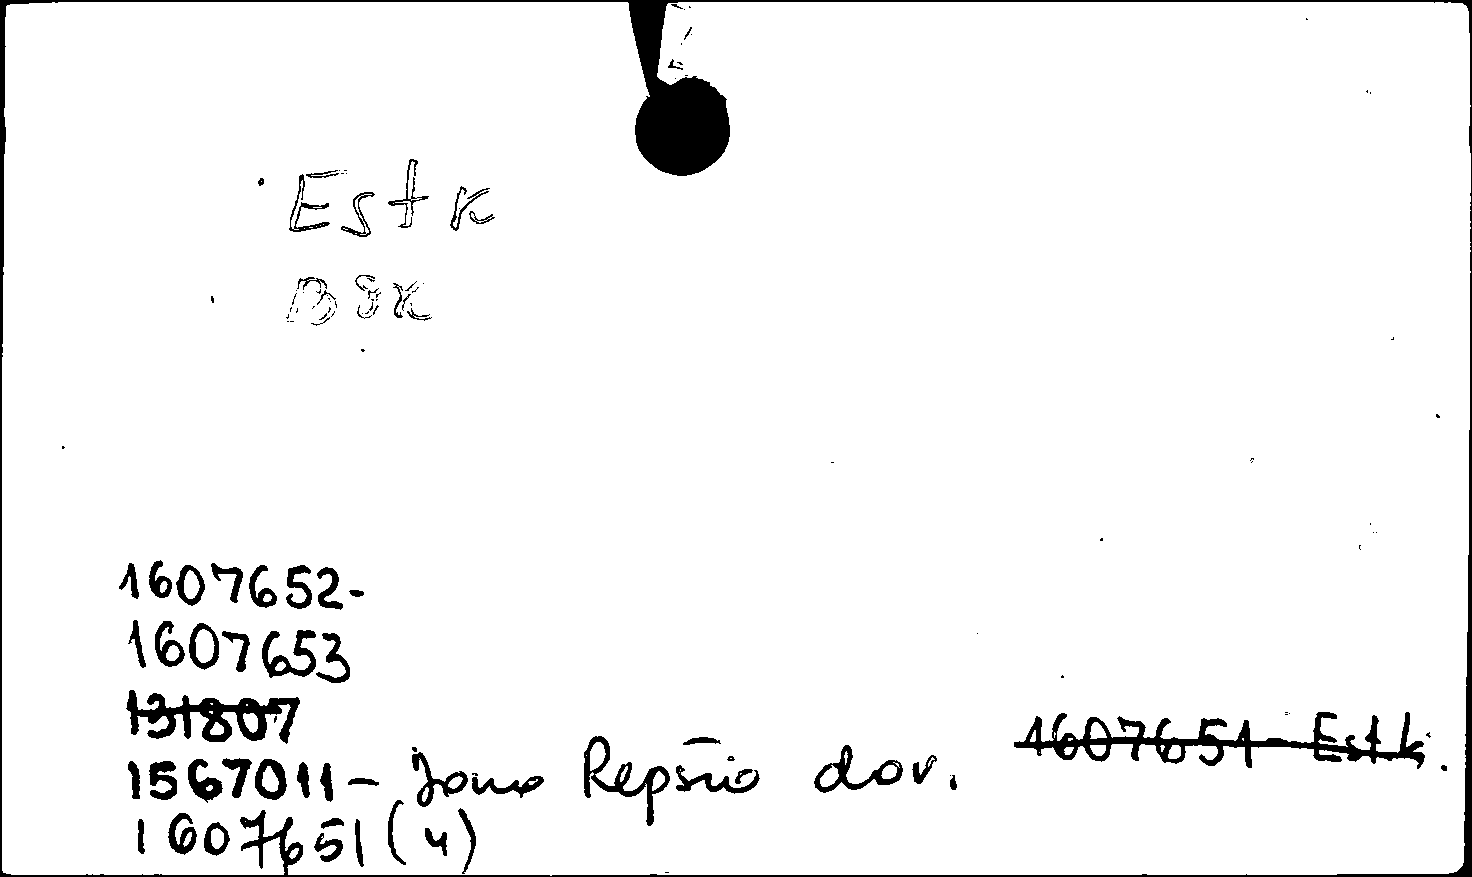 Estk
B8k
1607652-
1607653
131807
1607651 - Estk.
1567011 - Jono Repšio dov.
1607651 (4)